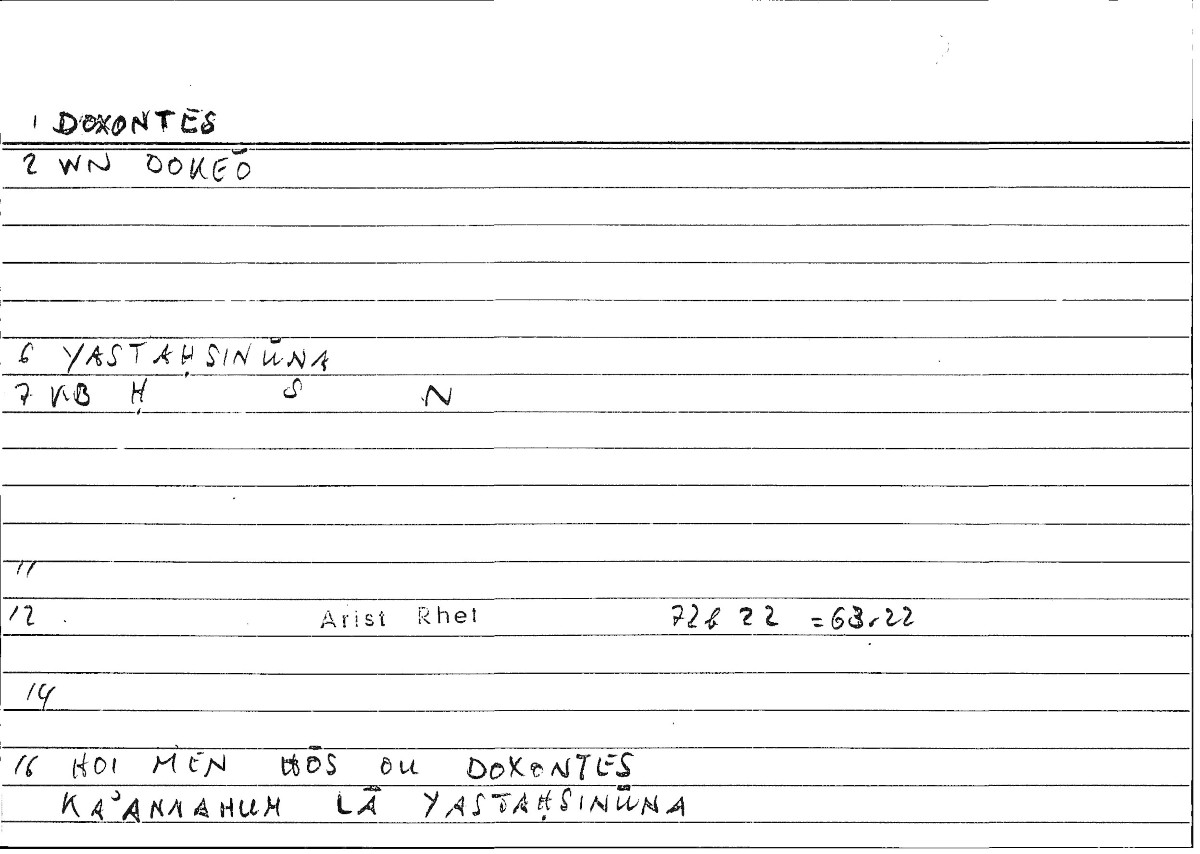 1 DOXONTES
2 WN DOKEŌ
6 YASTAḤSINŪNA
7 KB Ḥ S N
11
12 Arist Rhet 72b 22 =63.22
14
16 HOI MEN HŌS OU DOXONTES
KAʾANNAHUM LĀ YASTAḤSINŪNA